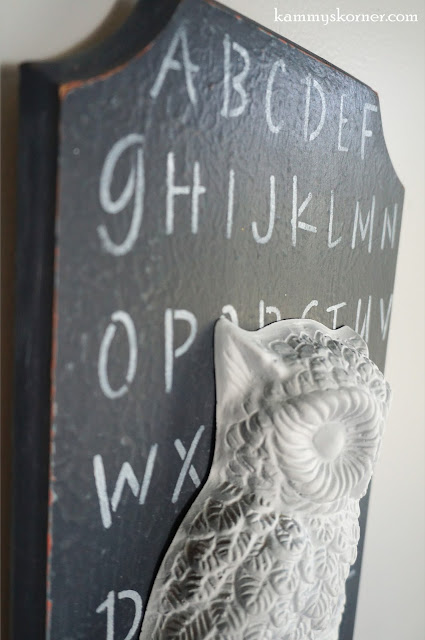 kammyskorner.com
A B C D E F
g H I J K L M N
O P Q R S T U V
W X